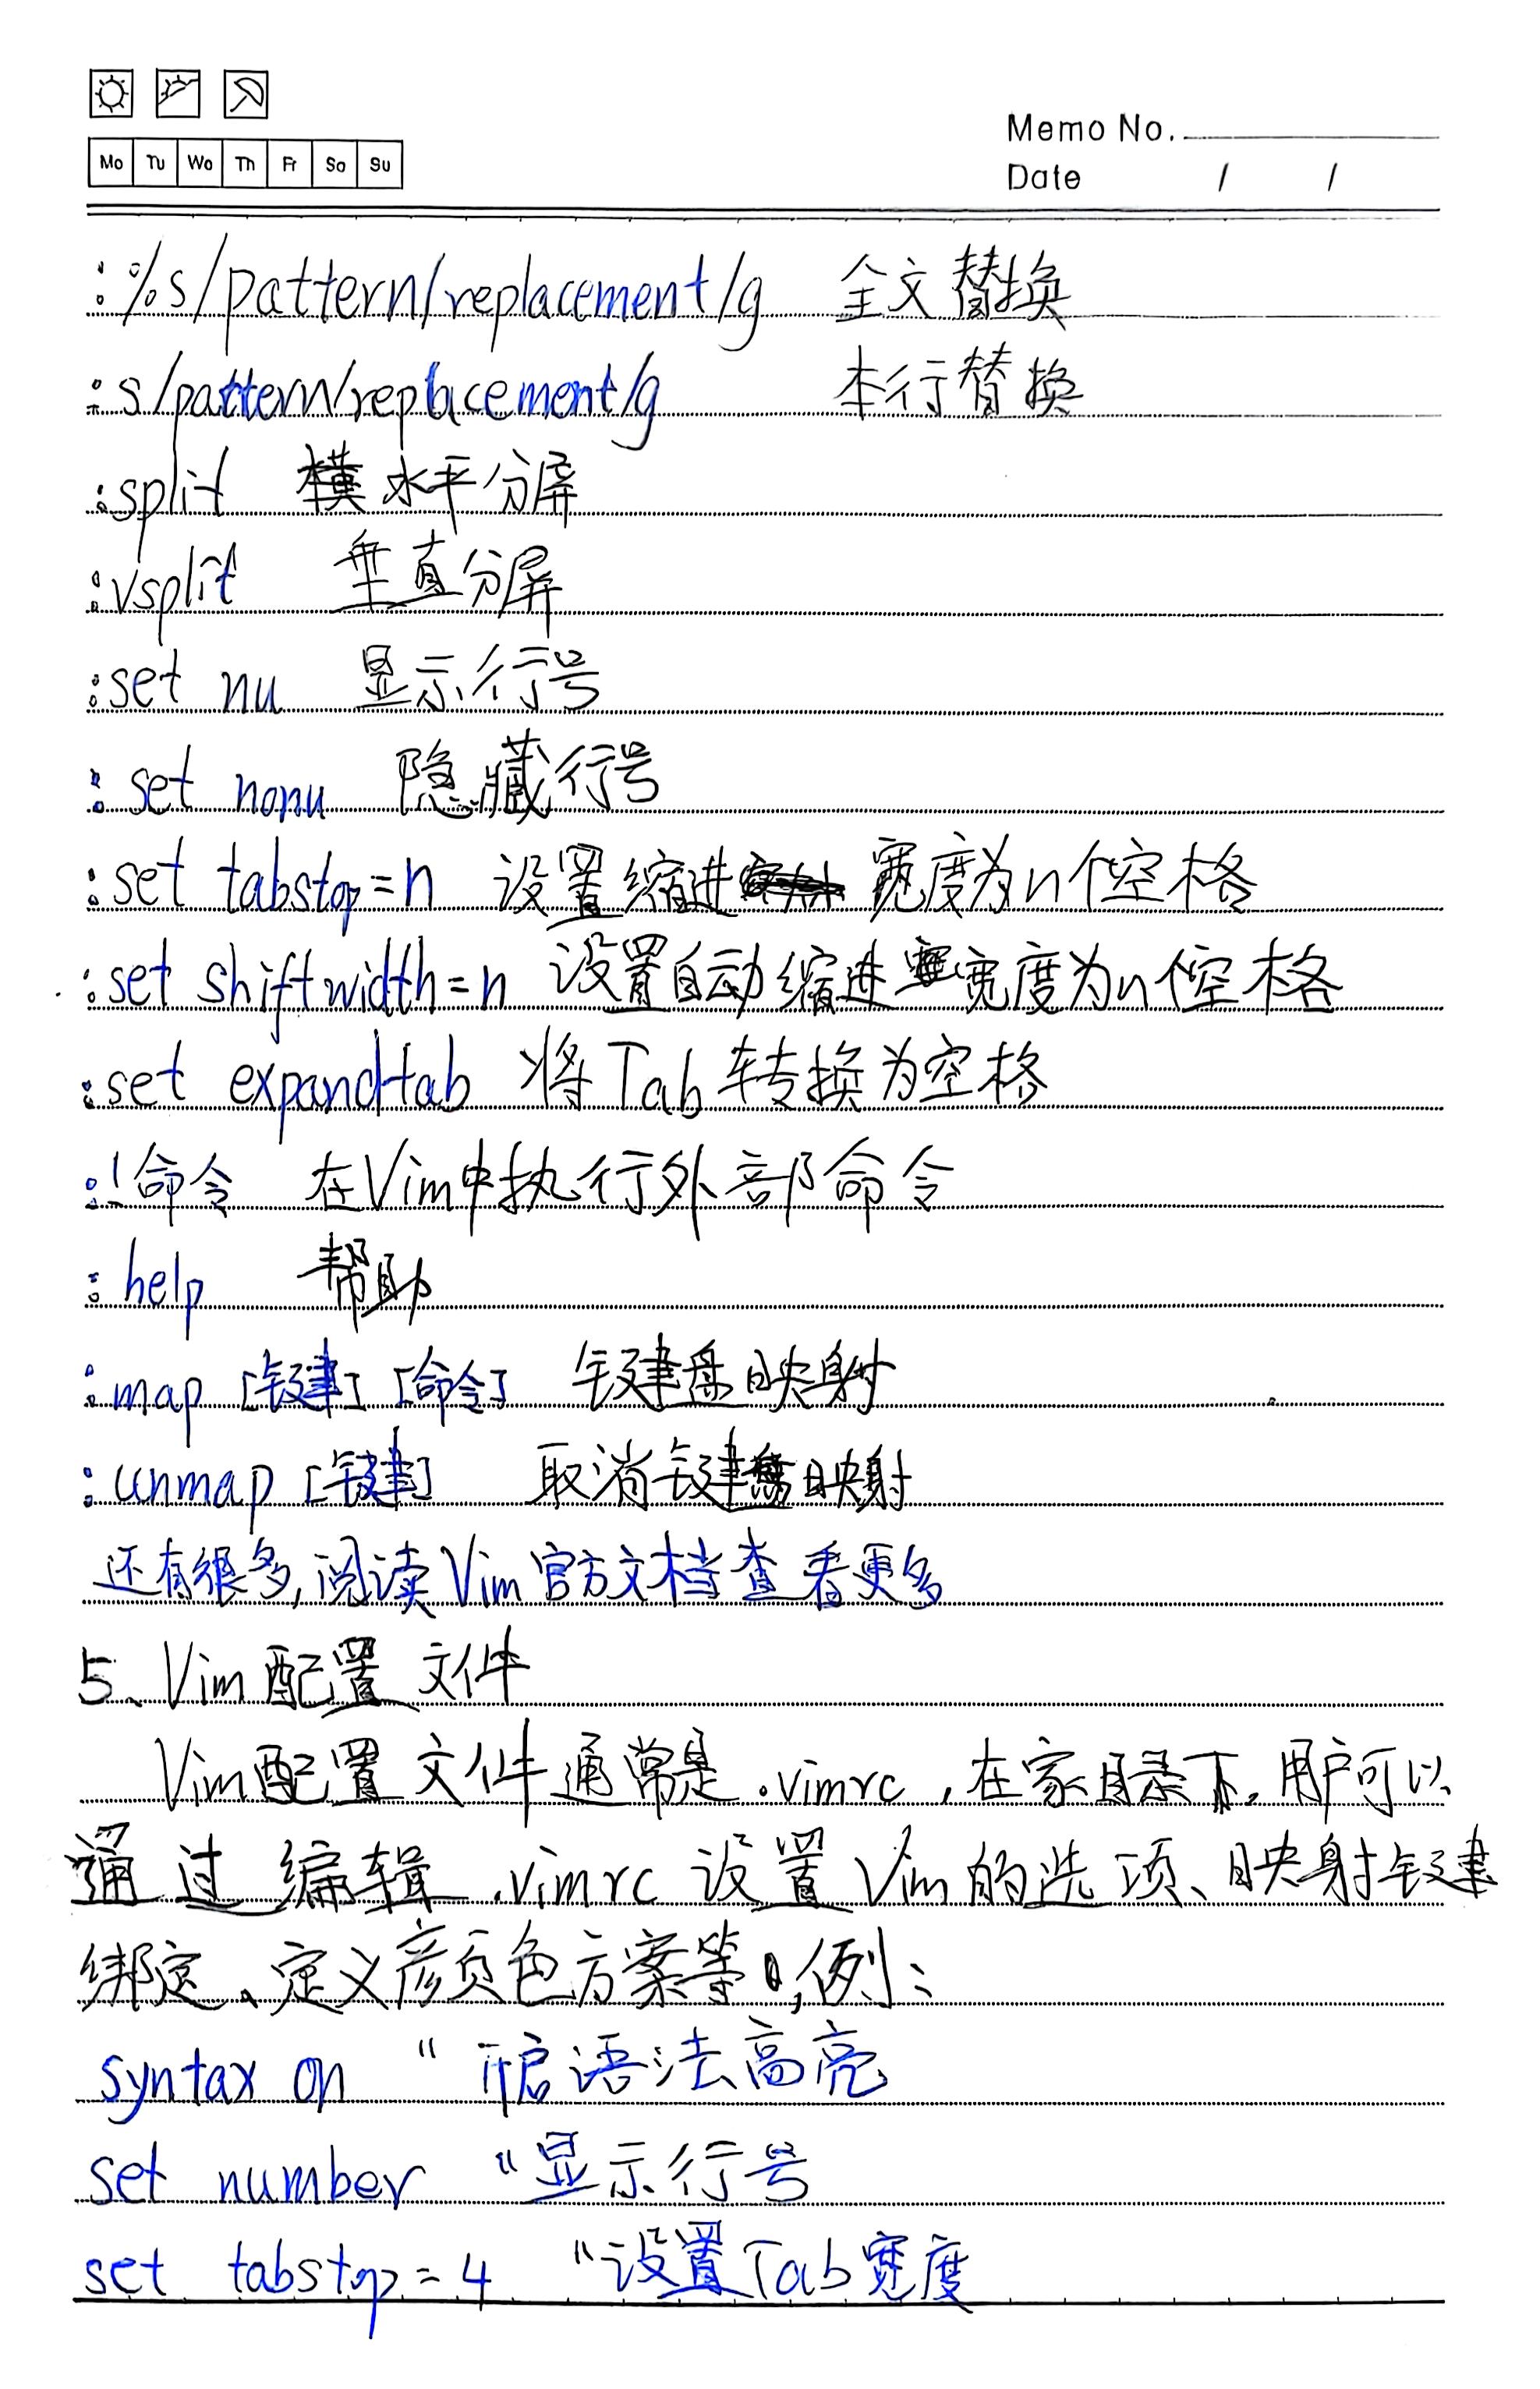 Mo Tu We Th Fr Sa Su
Memo No.
Date / /
:%s/pattern/replacement/g 全文替换
:s/pattern/replacement/g 本行替换
:split 横水平分屏
:vsplit 垂直分屏
:set nu 显示行号
:set nonu 隐藏行号
:set tabstop=n 设置缩进宽度为n个空格
:set shiftwidth=n 设置自动缩进宽度为n个空格
:set expandtab 将Tab转换为空格
:!命令 在Vim中执行外部命令
:help 帮助
:map [键] [命令] 键盘映射
:unmap [键] 取消键盘映射
还有很多,阅读Vim官方文档查看更多
5、Vim配置文件
Vim配置文件通常是.vimrc,在家目录下。用户可以
通过编辑.vimrc设置Vim的选项、映射键
绑定、定义颜色方案等,例:
syntax on "开启语法高亮
set number "显示行号
set tabstop=4 "设置Tab宽度